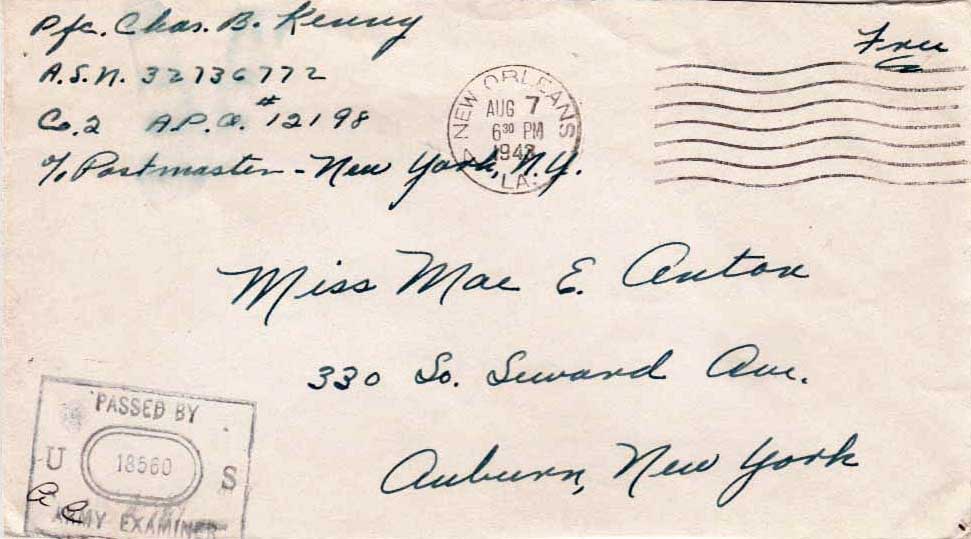 Pfc. Chas. B. Kenny
Free
A.S.N. 32736772
Co. 2 A.P.O. #12198
c/o Postmaster - New York, N.Y.
NEW ORLEANS
AUG 7
6 30 PM
1943
LA.
Miss Mae E. Anton
330 So. Seward Ave.
Auburn, New York
PASSED BY
U 18560 S
ARMY EXAMINER